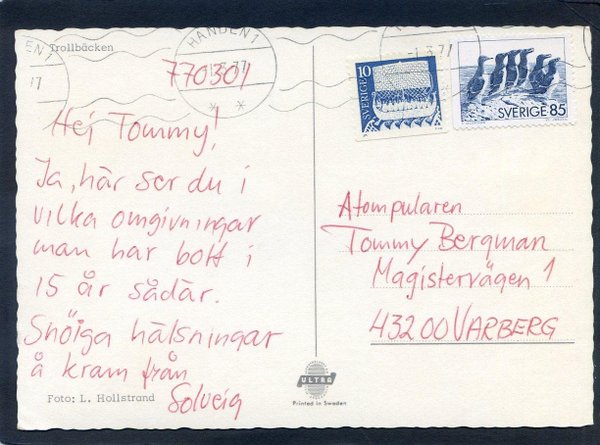 Trollbäcken
HANDEN 1
770301
Hej Tommy!
Ja, här ser du i
vilka omgivningar
man har bott i
15 år sådär.
Snöiga hälsningar
å kram från
Solveig
Foto: L. Hollstrand
HANDEN 1
-1.3.77
SVERIGE 10
SVERIGE 85
Atompularen
Tommy Bergman
Magistervägen 1
43200 VARBERG
ULTRA
Printed in Sweden